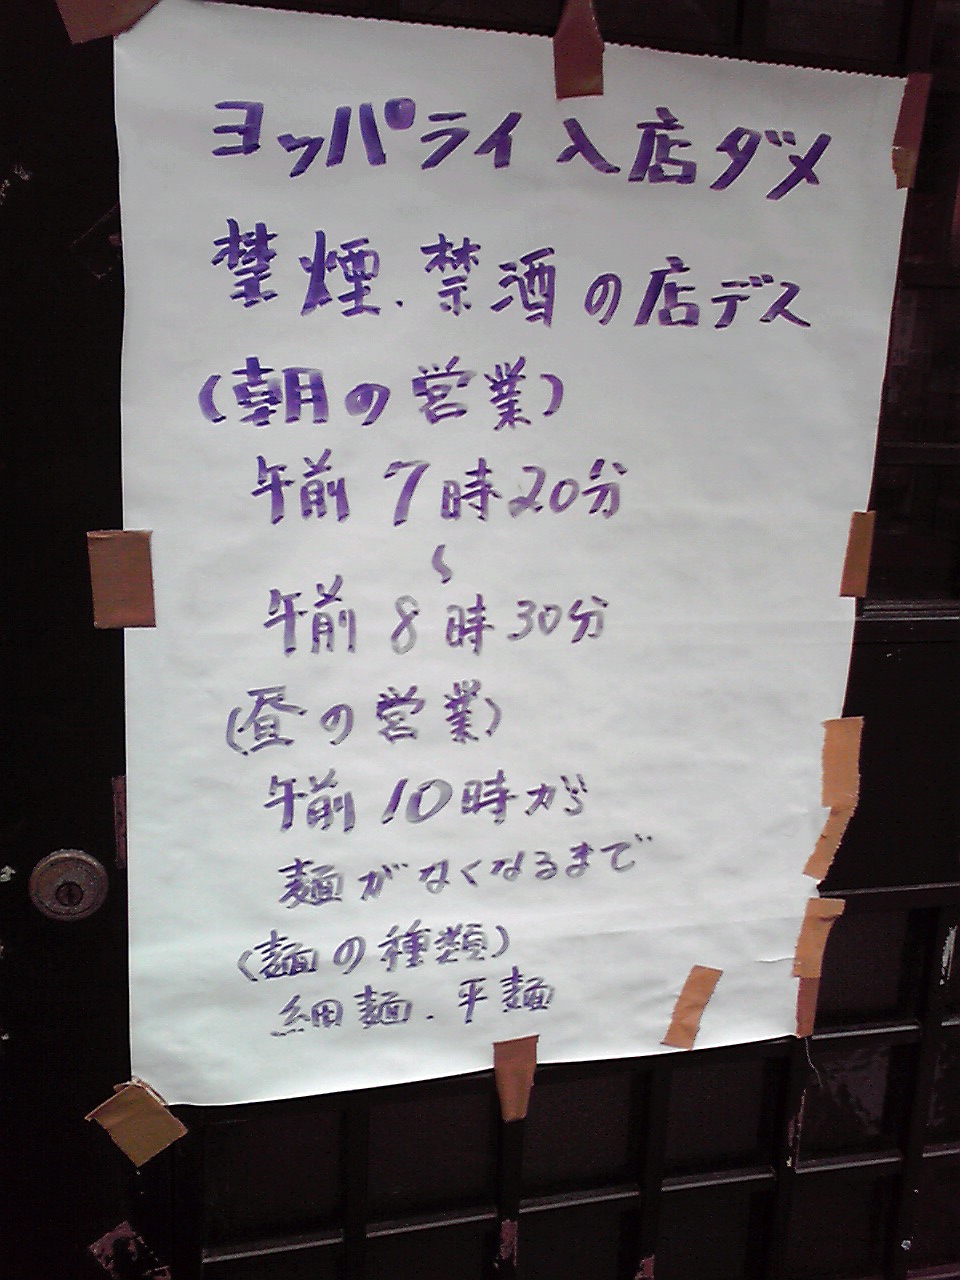 ヨッパライ入店ダメ
禁煙、禁酒の店デス
(朝の営業)
午前7時20分
〜
午前8時30分
(昼の営業)
午前10時から
麺がなくなるまで
(麺の種類)
細麺、平麺